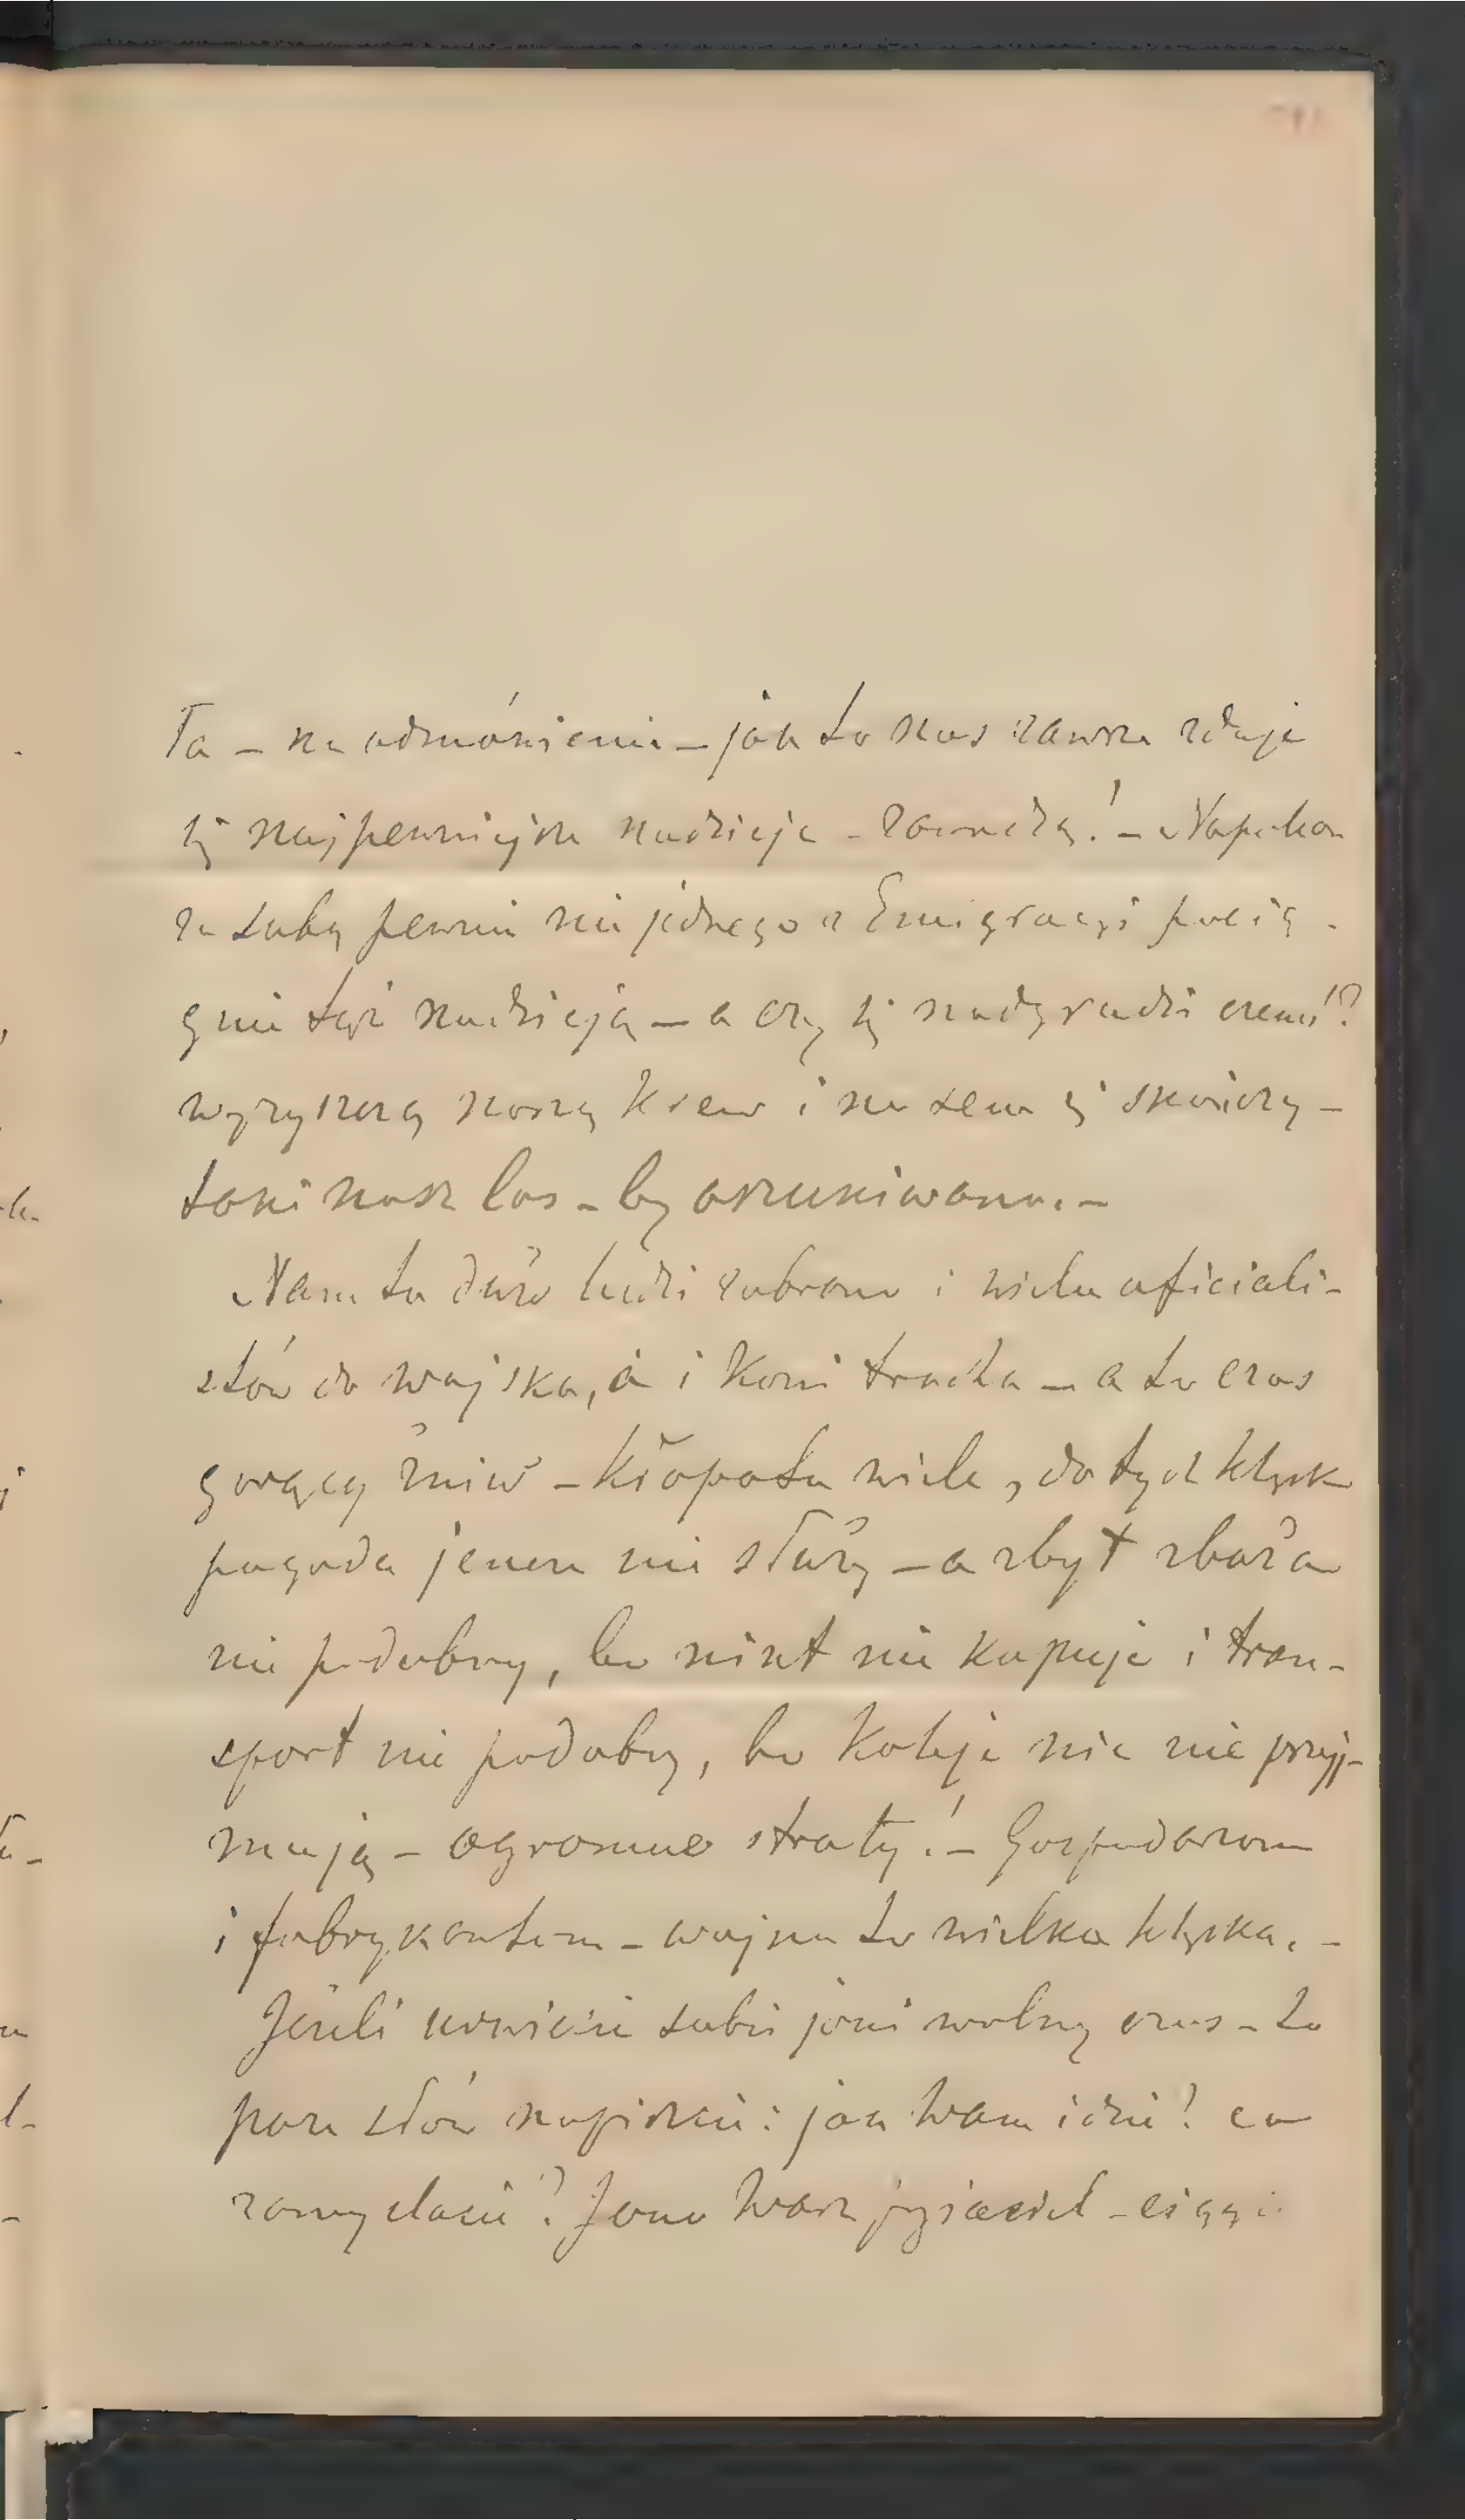 Ta – na odmówienie – jak to nas zawsze zdaje
się najpewniejsze nadzieje – zawodzą! – Napoleon
za sobą pewnie nie jednego z Emigracyi pocią-
gnie tąż nadzieją – a czy się nadgrodzi czemś?
wyzyszczą naszą krew i na tem się skończy –
taki nasz los – by oszukiwano. –
Nam tu dużo ludzi zabrano i wielu oficiali-
stów do wojska, a i koni trocha – a to czas
gorący żniw – kłopotu wiele, do tych klęsk
pogoda jeszcze nie służy – a zbyt zboża
nie podobny, bo nikt nie kupuje i tran-
sport nie podobny, bo koleje nic nie przyj-
mują – ogromne straty! – Gospodarzom
i fabrykantom – wojna to wielka klęska. –
Jeżeli sobie jaki wolny czas – to
parę słów napiszcie: jak Wam idzie? co
zamyślacie? Jako Wasz przyjaciel –